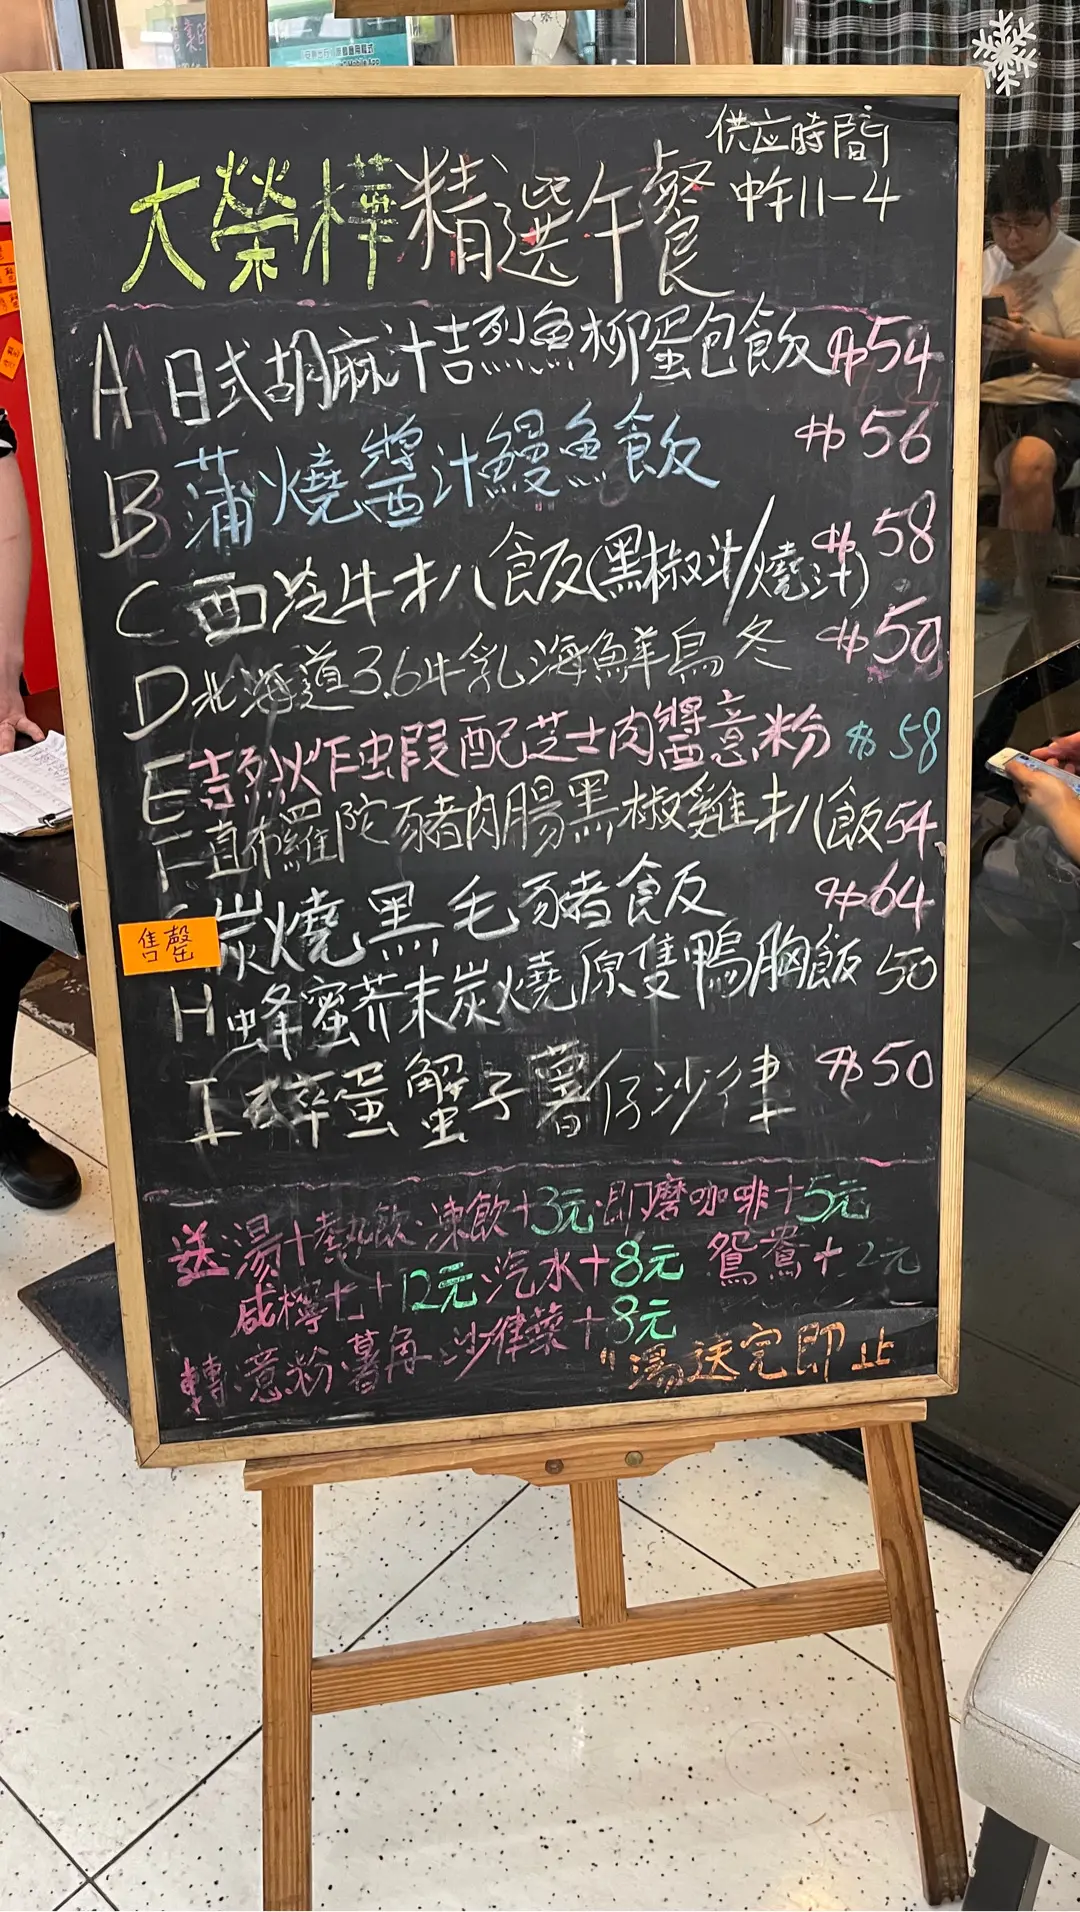 供应時間
中午11-4
大榮樺精選午餐
A 日式胡麻汁吉列魚柳蛋包飯 $54
B 蒲燒醬汁鰻魚飯 $56
C 西冷牛扒飯(黑椒汁/燒汁) $58
D 北海道3.6牛乳海鮮烏冬 $50
E 吉列炸虫叚配芝士肉醬意粉 $58
F 直布羅陀豬肉腸黑椒雞扒飯 54
炭燒黑毛豬飯 $64
售罄
H 蜂蜜芥末炭燒原隻鴨胸飯 50
I 碎蛋蟹子薯仔沙律 $50
送湯+熱飲·凍飲+3元·即磨咖啡+5元
咸檸七+12元·汽水+8元 鴛鴦+2元
轉意粉·薯角·沙律菜+8元
"湯送完即止